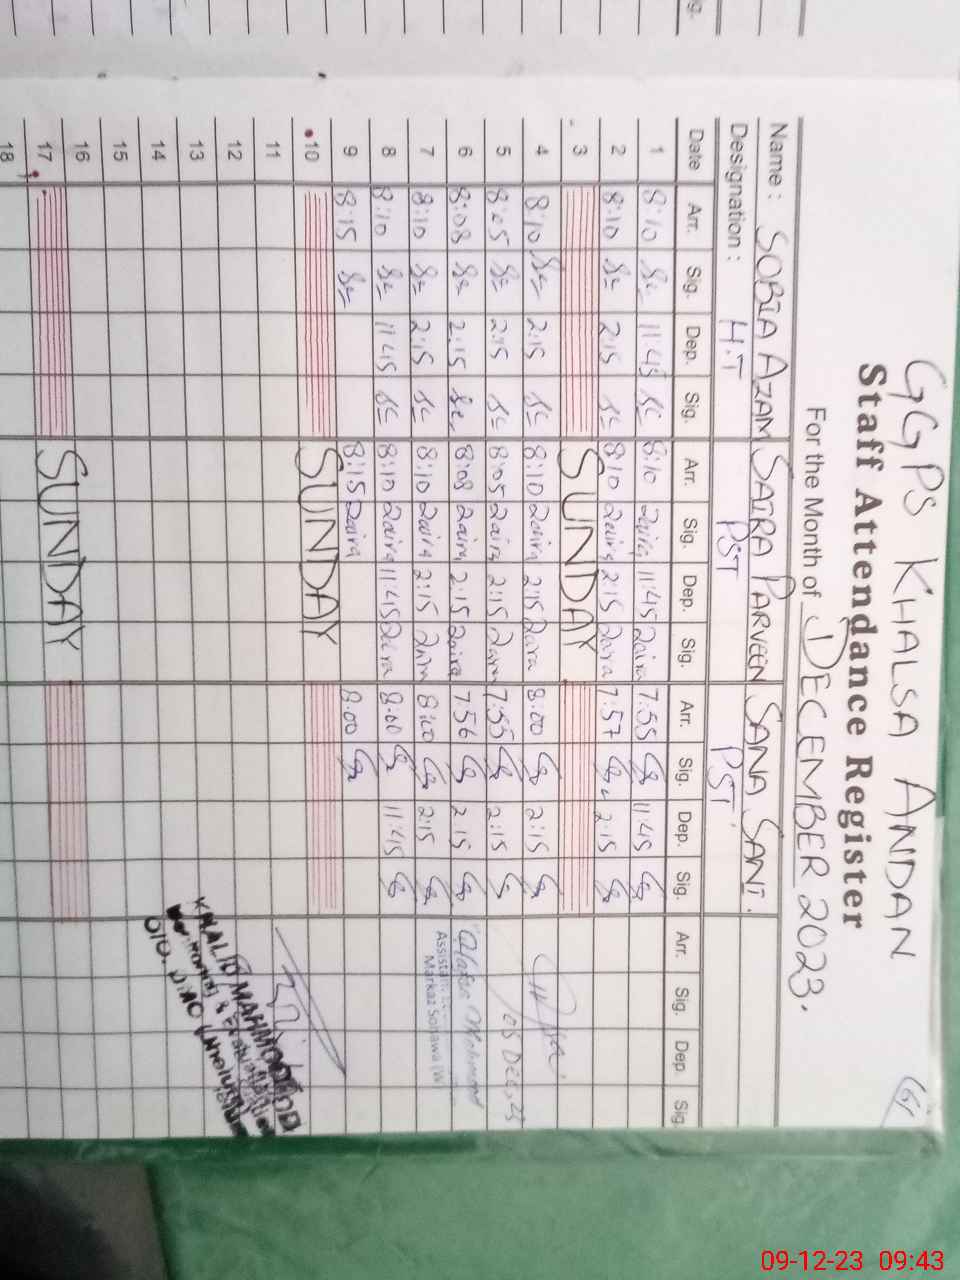 GGPS KHALSA ANDAN
Staff Attendance Register
For the Month of DECEMBER 2023.
Name : SOBIA AZAM SAIRA PARVEEN SANA SANI.
Designation : H.T PST PST
Date Arr. Sig. Dep. Sig. Arr. Sig. Dep. Sig. Arr. Sig. Dep. Sig. Arr. Sig. Dep. Sig.
1 8:10 11:45 8:10 Saira 11:45 Saira 7:55 11:45
2 8:10 2:15 8:10 Saira 2:15 Saira 7:57 2:15
3 SUNDAY
4 8:10 2:15 8:10 Saira 2:15 Saira 8:00 2:15
5 8:05 2:15 8:05 Saira 2:15 Saira 7:55 2:15
08 Dec, 23
6 8:08 2:15 8:08 Saira 2:15 Saira 7:56 2:15
7 8:10 2:15 8:10 Saira 2:15 Saira 8:00 2:15
Markaz Sohawa (W
8 8:10 11:45 8:10 Saira 11:45 Saira 8:00 11:45
9 8:15 8:15 Saira 8:00
10 SUNDAY
11
12
13
14
15
16
17 SUNDAY
18
KHALID MAHMOOD
09-12-23 09:43